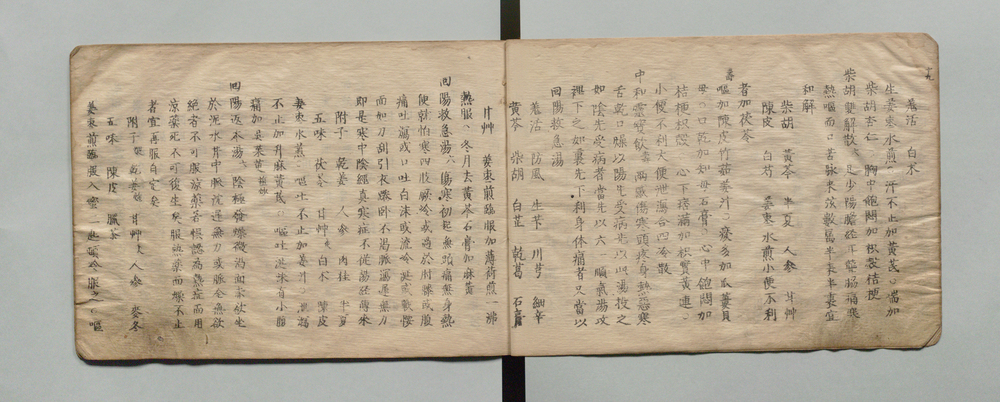 羌活 白术
生姜棗水煎 汗不止加黃芪 喘加
柴胡杏仁 胸中飽悶加枳殼桔梗
柴胡雙解散 足少陽膽經
和解
柴胡 黃芩 半夏 人參 甘艸
陳皮 白芍 姜棗水煎小便不利
者加茯苓
嘔加陳皮竹茹姜汁 痰多加瓜蔞貝
母 口乾加知母石膏 心中飽悶加
桔梗枳殼 心下痞滿加枳實黃連
小便不利大便泄瀉合四苓散
中和靈寶飲 兩感傷寒頭疼身熱惡寒
舌乾口燥以陽先受病先以此湯投之
如陰先受病者當先以六一順氣湯攻
裡下之如裏先下利身体痛者又當以
回陽救急湯
羌活 防風 生芐 川芎 細辛
黃芩 柴胡 白芷 乾葛 石膏
甘艸 姜棗煎臨服加薄荷煎一沸
熱服 冬月去黃芩石膏加麻黃
回陽救急湯 傷寒初起無頭痛無身熱
便就怕寒四肢厥冷或過於肘膝或腹
痛吐瀉或口吐白沫或流冷涎或戰慄
面如刀刮引衣踡卧不渴脉沉遲無力
即是寒中陰經真寒症不從陽經傳來
附子 乾姜 人參 肉桂 半夏
五味 茯苓 甘艸 白术 陳皮
姜棗水煎 嘔吐不止加姜汁 泄瀉
不止加升麻黃芪 嘔吐涎沫有小腹
痛加吳茱萸
回陽返本湯 陰極發燥微渴面赤欲坐
於泥水井中脉沉遲無力或脉全無欲
絕者不可服涼藥若悞認為熱症而用
涼藥死不可復生矣服熱藥而燥不止
者宜再服自定矣
附子 乾姜 甘艸 人參 麥冬
五味 陳皮 臘茶
姜棗煎臨服入蜜